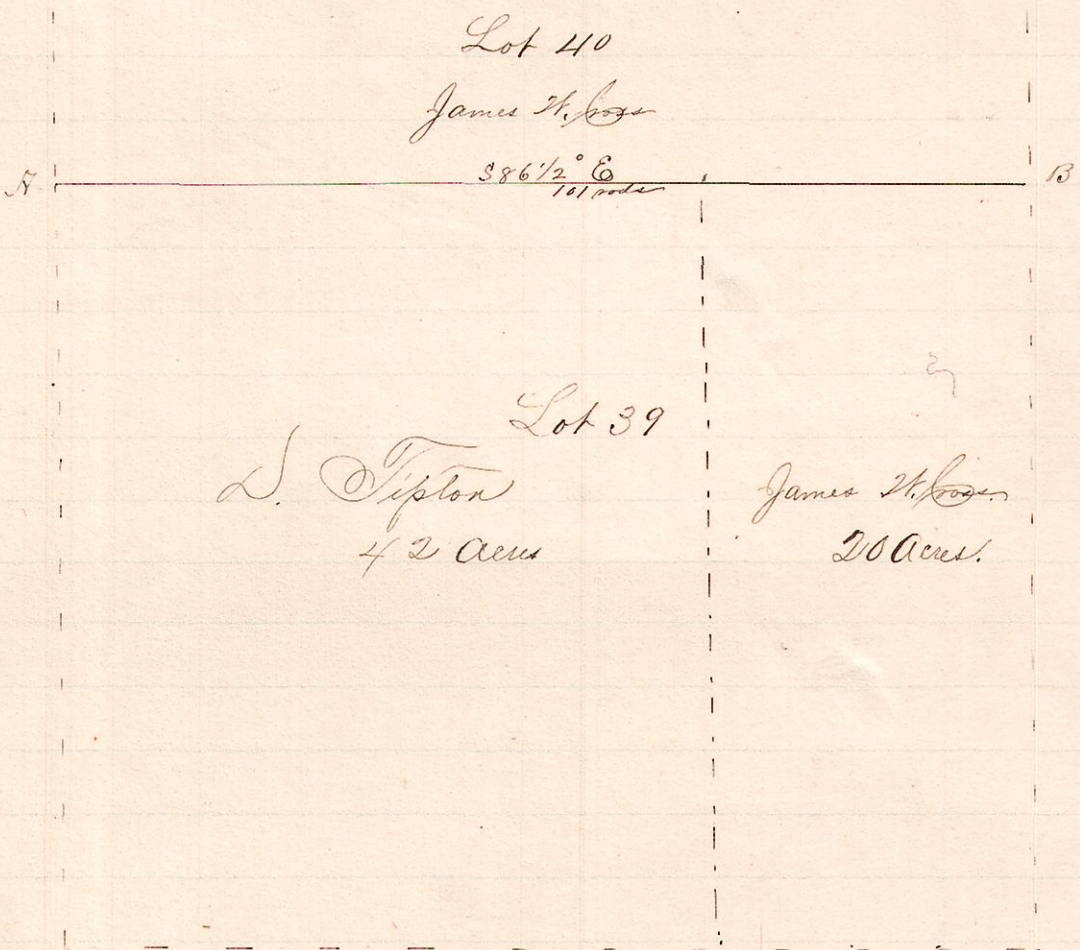 Lot 40
James W. Cross
A S 86 1/2° E B
101 rods
Lot 39
D. Tipton
42 Acres
James W. Cross.
20 Acres.